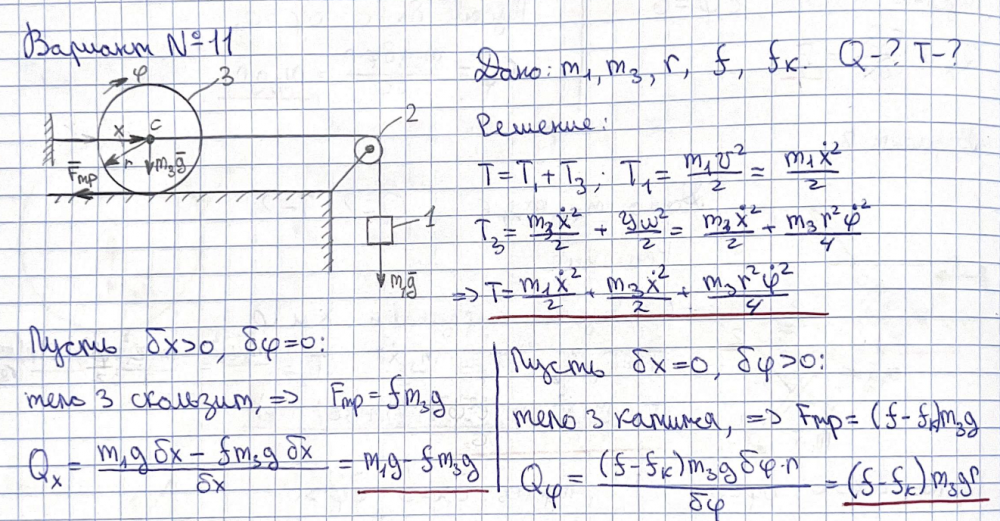 Вариант №11
φ
3
x
C
r
m₃g̅
F̅тр
2
1
m₁g̅
Дано: m₁, m₃, r, f, fк. Q-? T-?
Решение:
T = T₁ + T₃; T₁ = m₁v²/2 = m₁ẋ²/2
T₃ = m₃ẋ²/2 + Jω²/2 = m₃ẋ²/2 + m₃r²φ̇²/4
=> T = m₁ẋ²/2 + m₃ẋ²/2 + m₃r²φ̇²/4
Пусть δx>0, δφ=0:
тело 3 скользит, => Fтр = fm₃g
Qₓ = (m₁g δx - fm₃g δx)/δx = m₁g - fm₃g
Пусть δx=0, δφ>0:
тело 3 катится, => Fтр = (f-fк)m₃g
Qφ = ((f-fк)m₃g δφ·r)/δφ = (f-fк)m₃gr